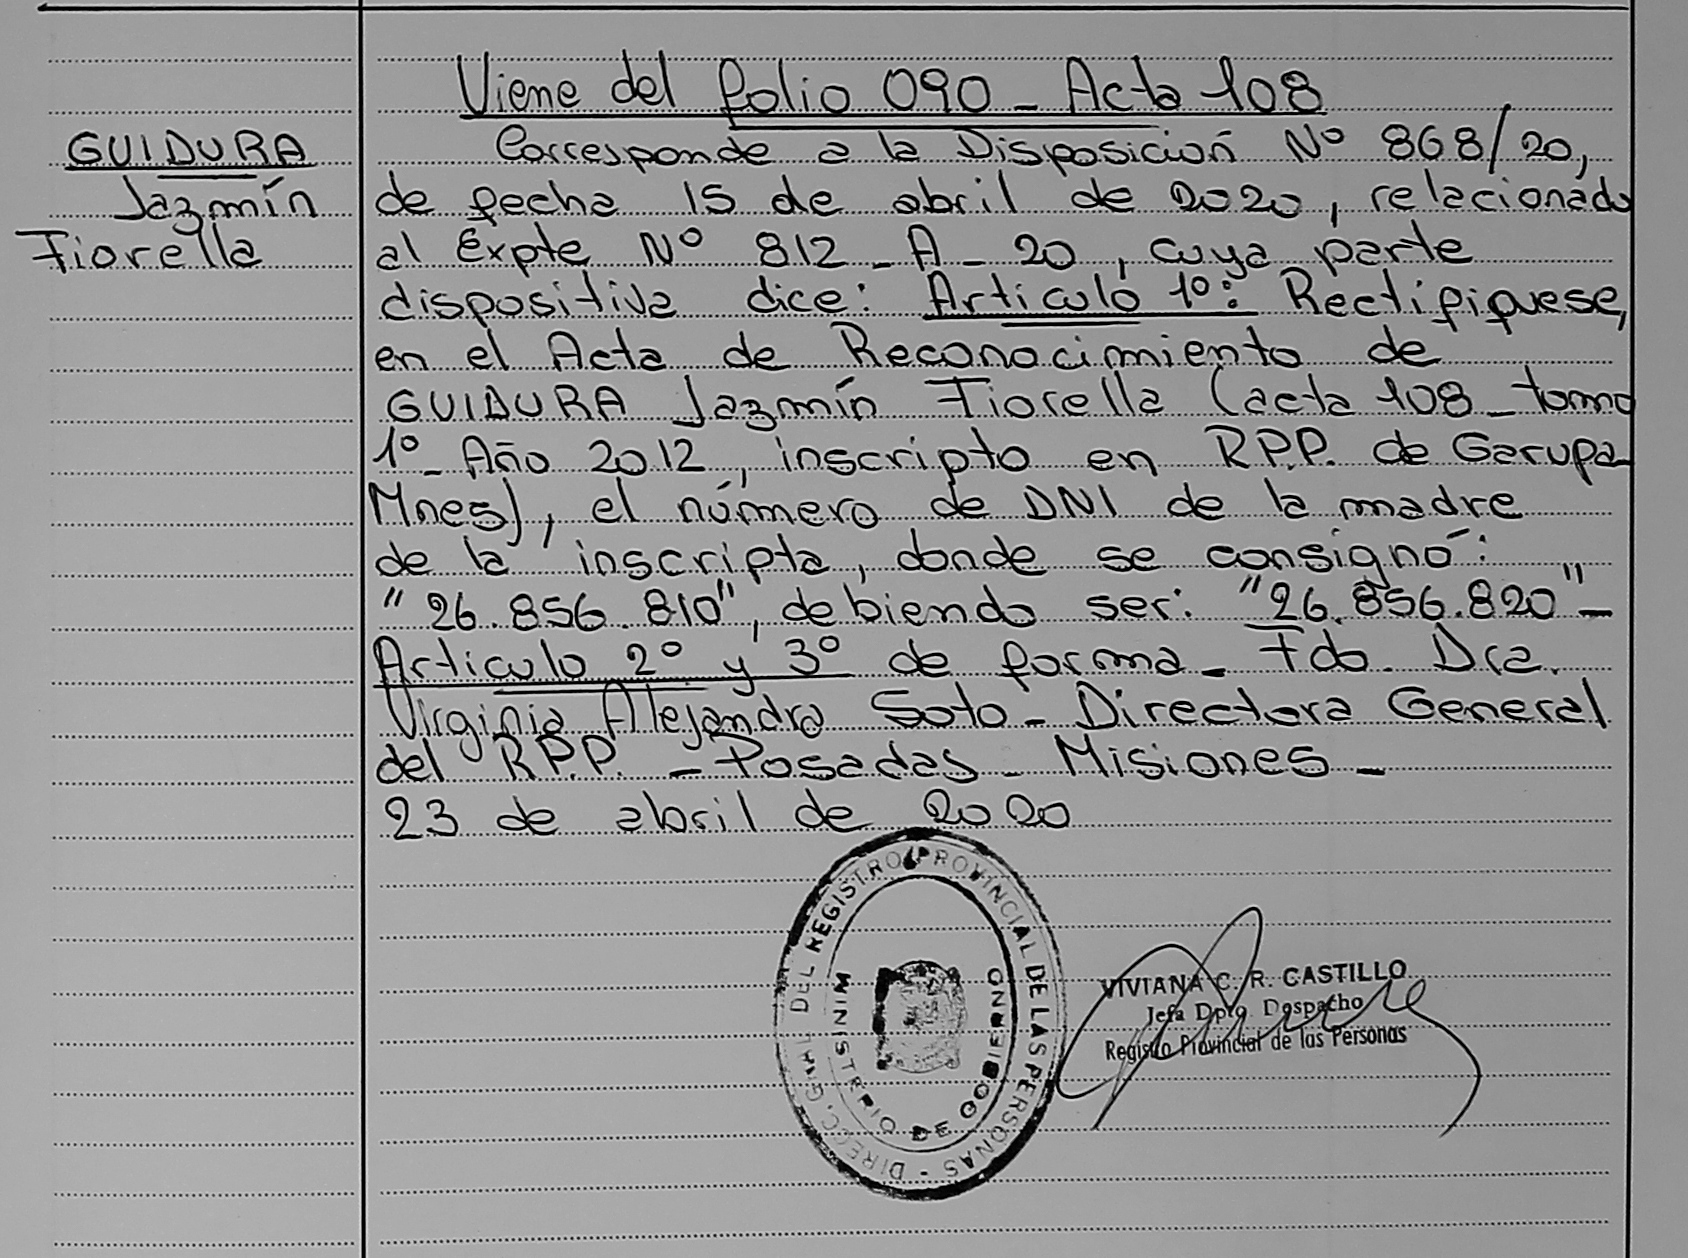 Viene del folio 090 - Acta 108
GUIDURA
Jazmín
Fiorella
Corresponde a la Disposición Nº 868/20,
de fecha 15 de abril de 2020, relacionado
al Expte Nº 812 - A - 20, cuya parte
dispositiva dice: Artículo 1º: Rectifiquese,
en el Acta de Reconocimiento de
GUIDURA Jazmín Fiorella (acta 108 - tomo
1º - Año 2012, inscripto en R.P.P. de Garupa
Mnes), el número de DNI de la madre
de la inscripta, donde se consignó:
"26.856.810", debiendo ser: "26.856.820" -
Articulo 2º y 3º de forma - Fdo. Dra.
Virginia Alejandra Soto - Directora General
del R.P.P. - Posadas - Misiones -
23 de abril de 2020
DIRECC. GRAL DEL REGISTRO PROVINCIAL DE LAS PERSONAS -
MINISTERIO DE GOBIERNO
VIVIANA C. R. CASTILLO
Jefa Dpto. Despacho
Registro Provincial de las Personas